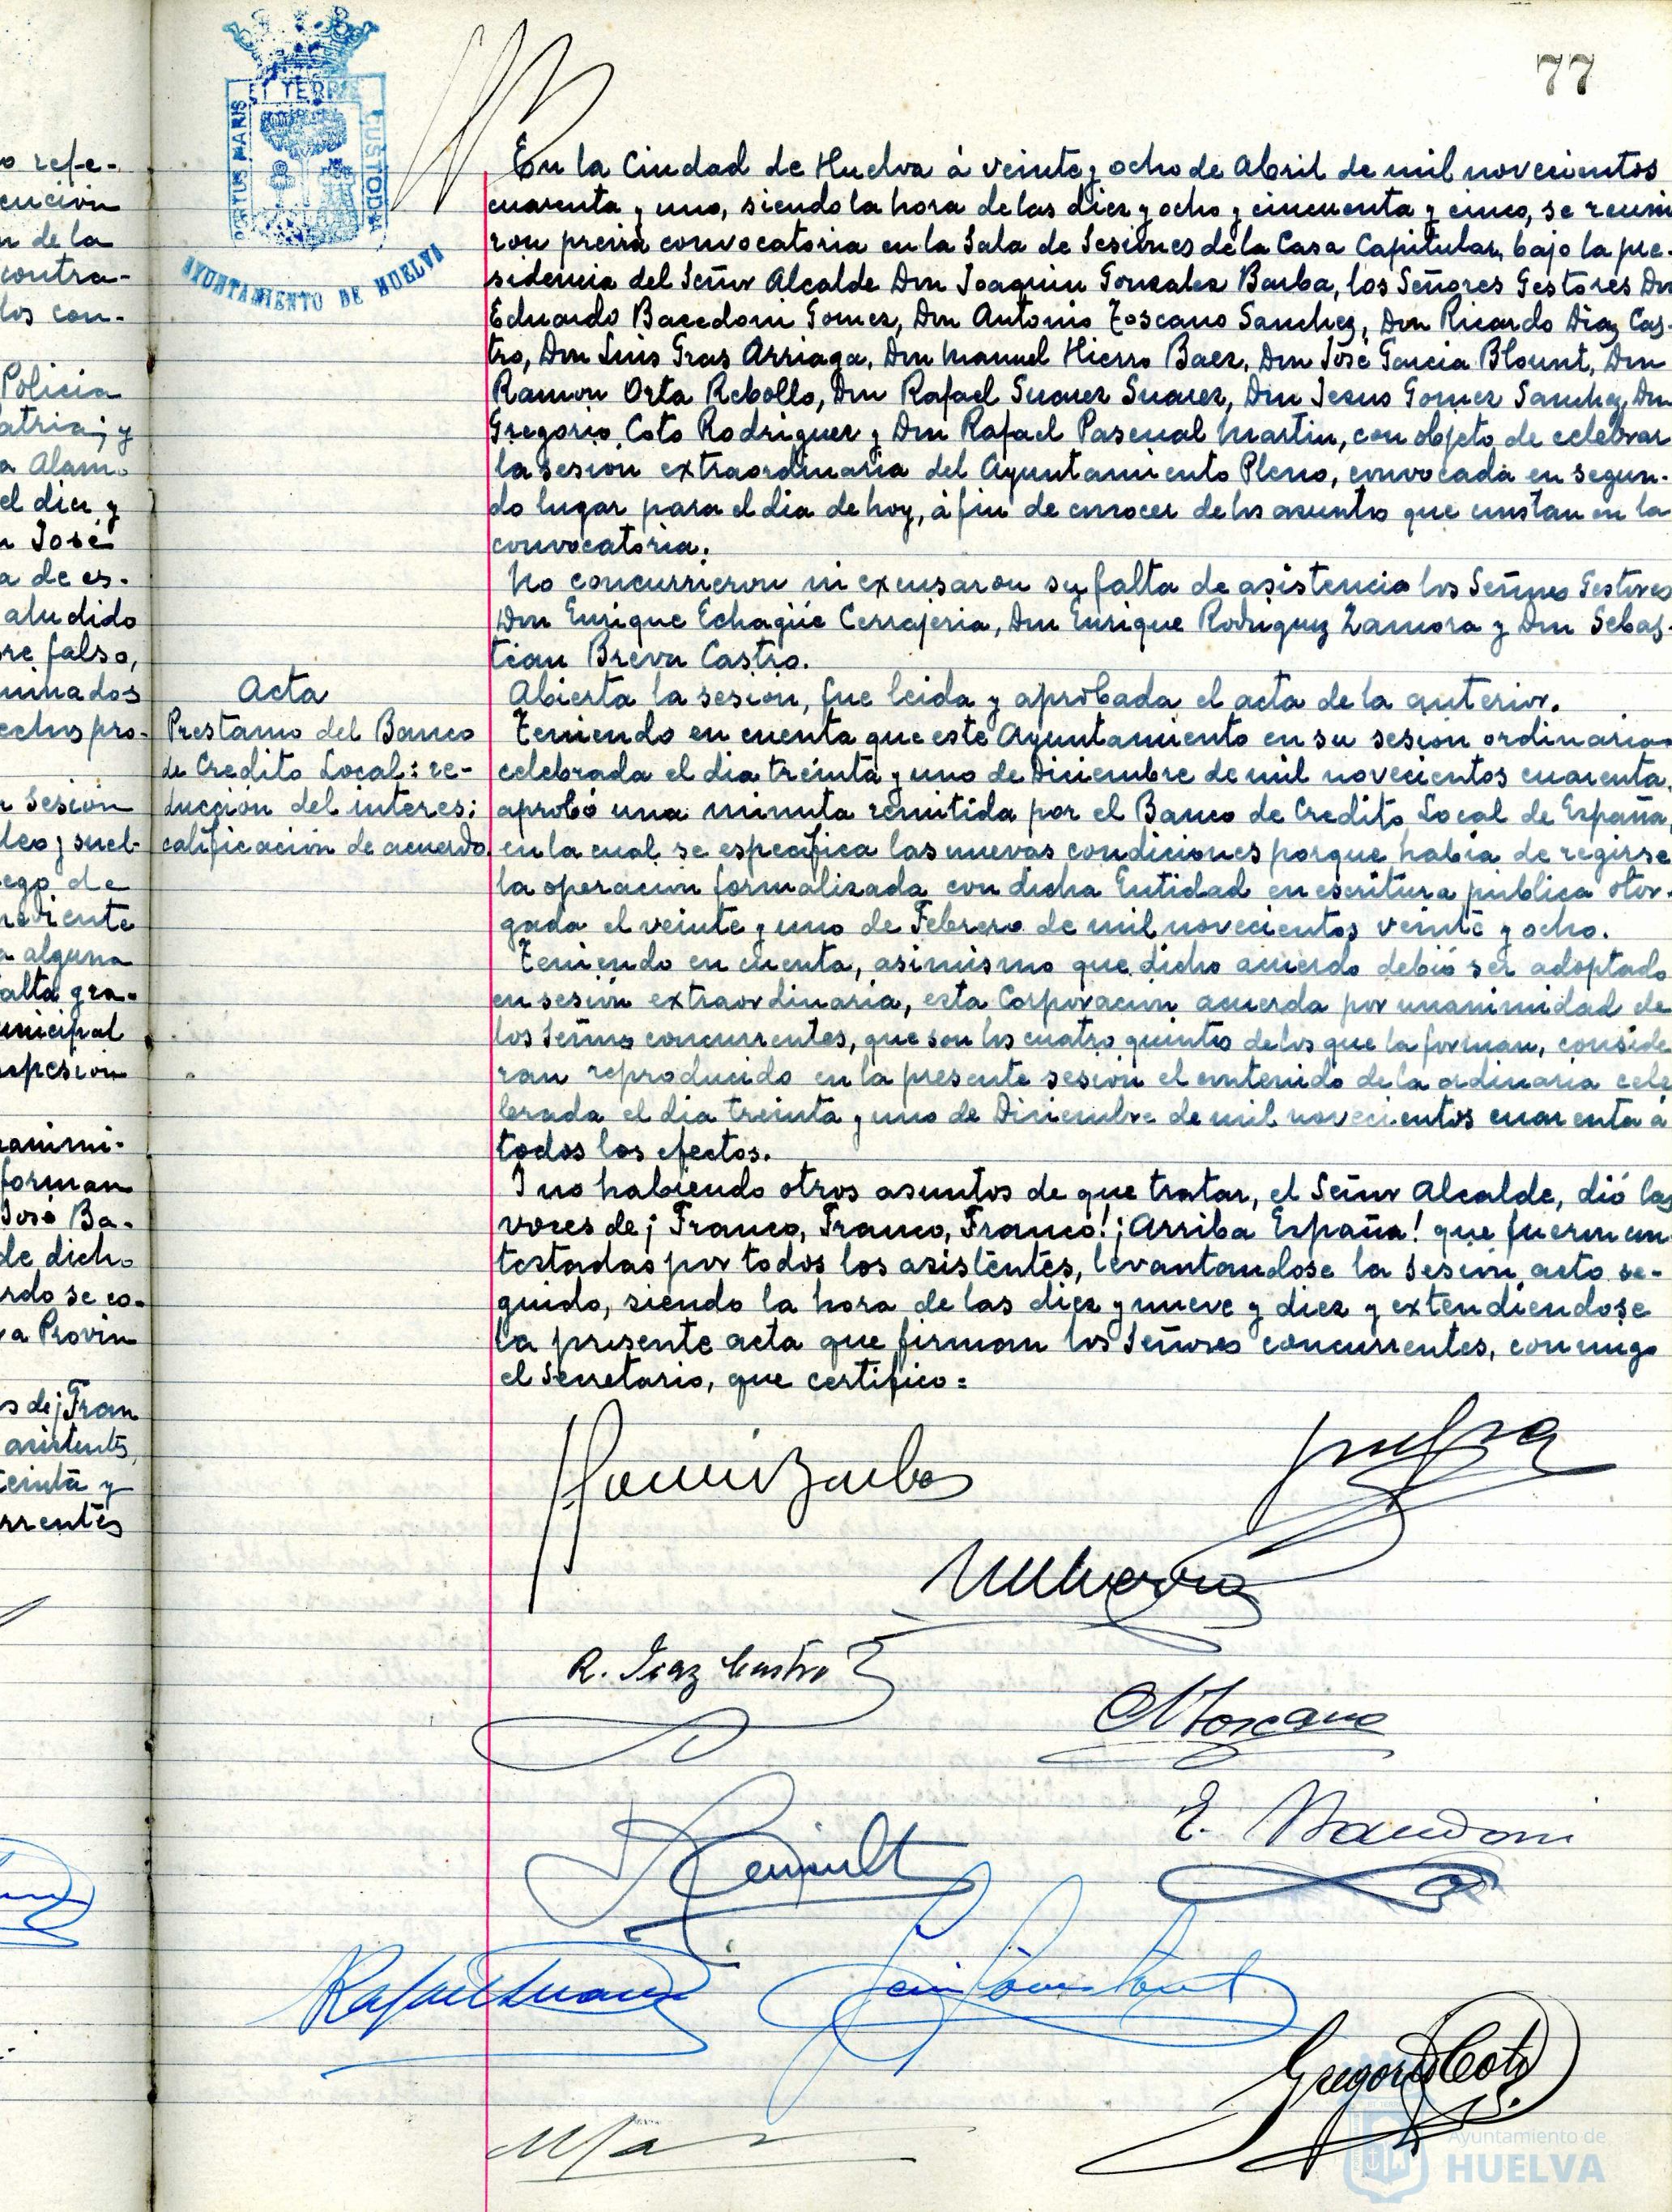 77
PORTUS MARIS ET TERRAE CUSTODIA
AYUNTAMIENTO DE HUELVA
o refe-
cución
n de la
contra-
los con-
Policia
atria; y
a Alam
el diez y
n José
a de es-
aludido
re falso,
minados
echos pro-
n sesión
leo y suel-
ego de
a alguna
alta gra-
unicipal
nanimi-
forman
José Ba-
de dicho
rdo se co-
va Provin
s de ¡Fran
asistentes,
treinta y
rrentes
En la Ciudad de Huelva á veinte y ocho de Abril de mil novecientos
cuarenta y uno, siendo la hora de las diez y ocho y cincuenta y cinco, se reuni
ron previa convocatoria en la Sala de Sesiones de la Casa Capitular, bajo la pre-
sidencia del Señor Alcalde Don Joaquin Gonzalez Barba, los Señores Gestores Don
Eduardo Bacedoni Gomez, Don Antonio Toscano Sanchez, Don Ricardo Diaz Cas-
tro, Don Luis Gras Arriaga, Don Manuel Hierro Baez, Don José Garcia Blount, Don
Ramon Orta Rebollo, Don Rafael Suarez Suarez, Don Jesus Gomez Sanchez, Don
Gregorio Coto Rodriguez y Don Rafael Pascual Martin, con objeto de celebrar
la sesión extraordinaria del Ayuntamiento Pleno, convocada en segun-
do lugar para el dia de hoy, á fin de conocer de los asuntos que constan en la
convocatoria.
No concurrieron ni excusaron su falta de asistencia los Señores Gestores
Don Enrique Echagüe Cerrajeria, Don Enrique Rodriguez Zamora y Don Sebas-
tian Breva Castro.
Acta
Abierta la sesión, fue leida y aprobada el acta de la anterior.
Prestamo del Banco
de Credito Local: re-
ducción del interes;
calificación de acuerdo
Teniendo en cuenta que este Ayuntamiento en su sesión ordinaria
celebrada el dia treinta y uno de Diciembre de mil novecientos cuarenta,
aprobó una minuta remitida por el Banco de Credito Local de España,
en la cual se especifica las nuevas condiciones porque habia de regirse
la operación formalizada con dicha Entidad en escritura pública otor-
gada el veinte y uno de Febrero de mil novecientos veinte y ocho.
Teniendo en cuenta, asimismo que dicho acuerdo debió ser adoptado
en sesión extraordinaria, esta Corporación acuerda por unanimidad de
los Señores concurrentes, que son los cuatro quintos de los que la forman, conside
ran reproducido en la presente sesión el contenido de la ordinaria cele
brada el dia treinta y uno de Diciembre de mil novecientos cuarenta á
todos los efectos.
Y no habiendo otros asuntos de que tratar, el Señor Alcalde, dió las
voces de ¡Franco, Franco, Franco! ¡Arriba España! que fueron con
testadas por todos los asistentes, levantandose la Sesión, acto se-
guido, siendo la hora de las diez y nueve y diez y extendiendose
la presente acta que firman los Señores concurrentes, conmigo
el Secretario, que certifico =
R. Diaz Castro
A Toscano
E. Bacedoni
Rafael Suarez
Gregorio Coto
Ayuntamiento de
HUELVA